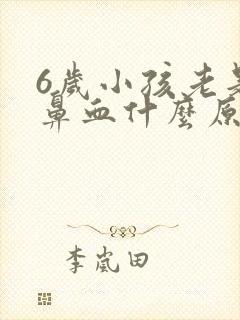 6歲小孩老是
鼻血什麼原
李嵐田